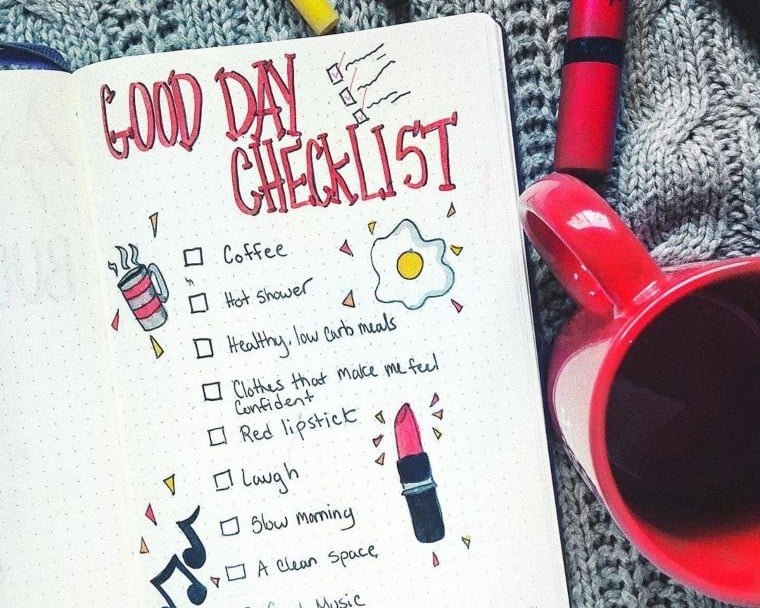 GOOD DAY
CHECKLIST
Coffee
Hot shower
Healthy, low carb meals
Clothes that make me feel
confident
Red lipstick
Laugh
Slow morning
A clean space
Music